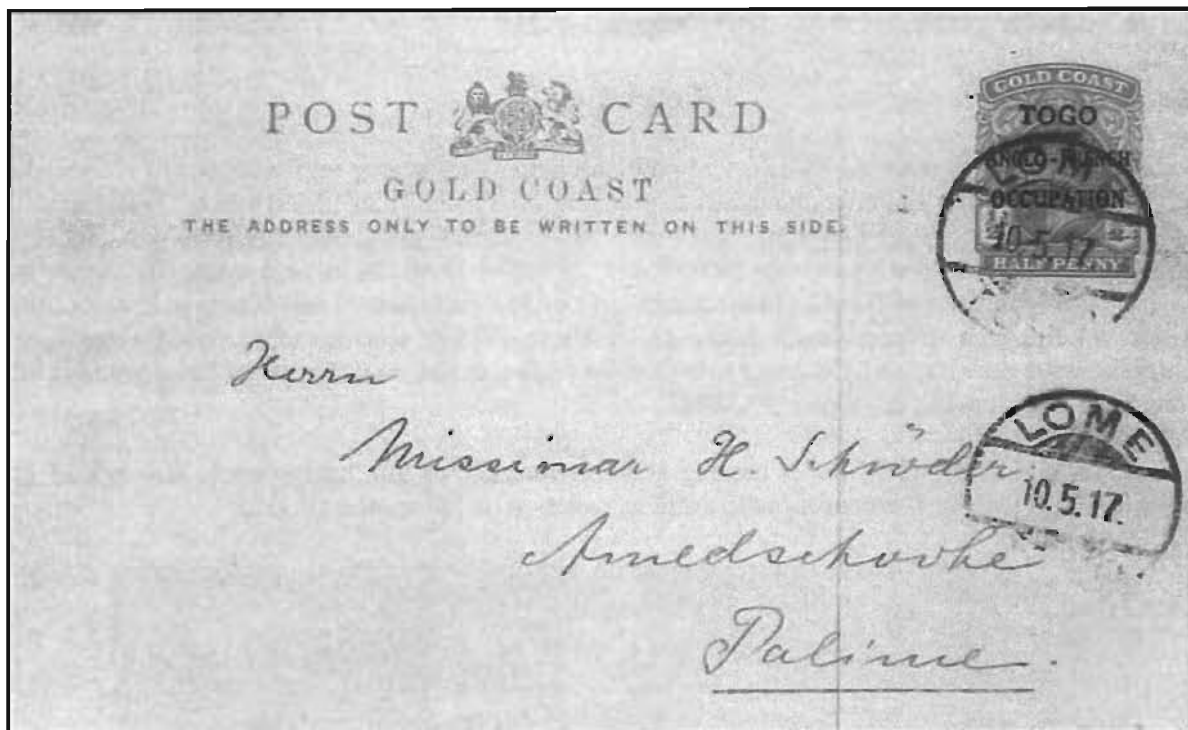 POST CARD
GOLD COAST
THE ADDRESS ONLY TO BE WRITTEN ON THIS SIDE.
GOLD COAST
TOGO
ANGLO-FRENCH
OCCUPATION
HALF PENNY
LOME
10.5.17.
Herrn
Missionar H. Schröder
Amedschovhe
Palime.
LOME
10.5.17.